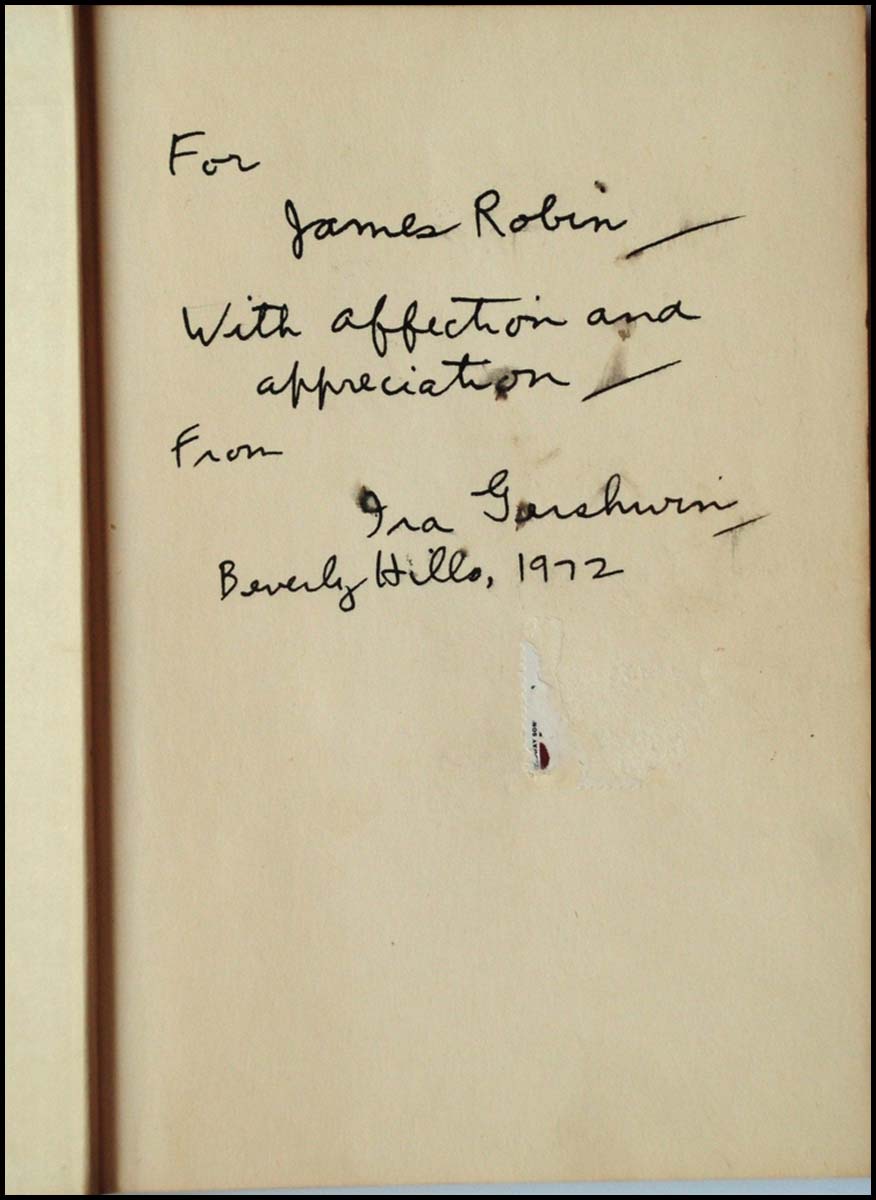 For
James Robin
With affection and
appreciation
From
Ira Gershwin
Beverly Hills, 1972